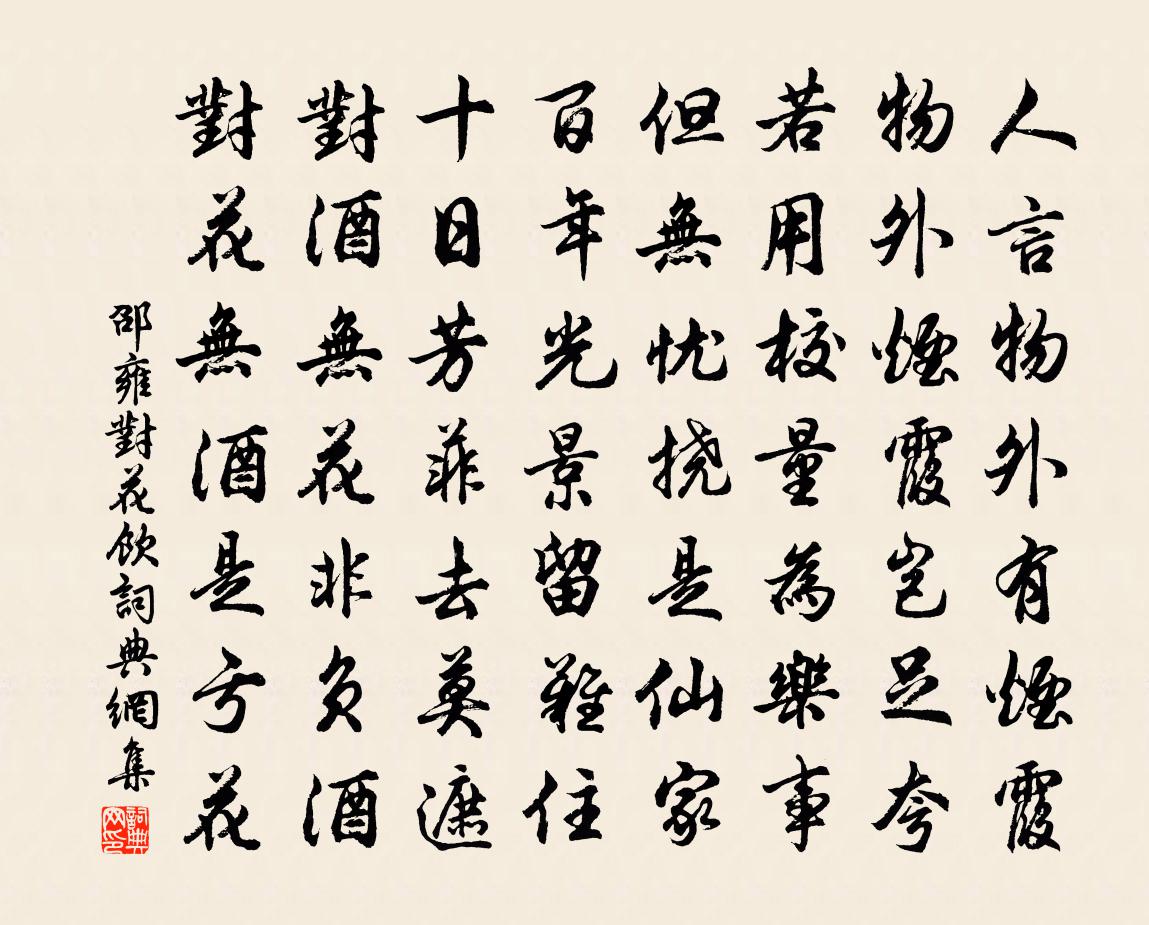 人言物外有煙霞
物外煙霞豈足夸
若用校量為樂事
但無忧撓是仙家
百年光景留難住
十日芳菲去莫遮
對酒無花非负酒
對花無酒是亏花
邵雍對花飲詞典網集
詞典网印